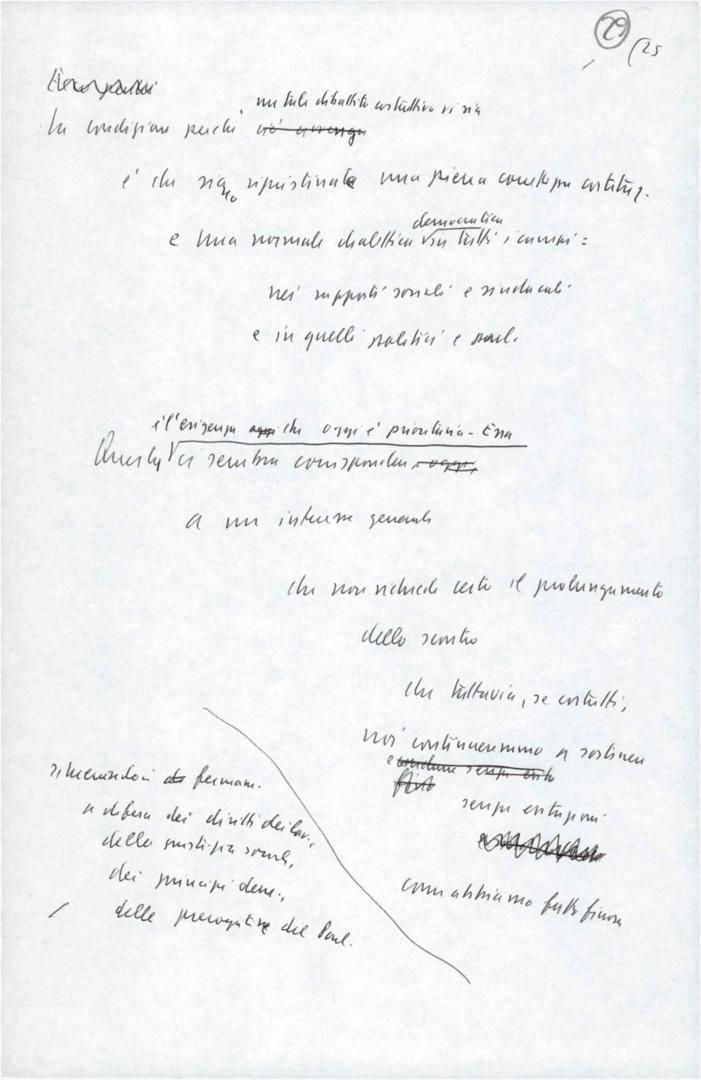 29 / 25
un tale dibattito costruttivo vi sia
La condizione perché ciò avvenga
è che siano ripristinate una piena correttezza costituz.
democratica
e una normale dialettica in tutti i campi:
nei rapporti sociali e sindacali
e in quelli politici e parl.
è l'esigenza oggi che oggi è prioritaria - Essa
Questa ci sembra corrispondere oggi,
a un interesse generale
che non richiede certo il prolungamento
dello scontro
che tuttavia, se costretti,
noi continueremmo a sostenere
senza esitazioni
come abbiamo fatto finora
richiamandoci fermam.
a difesa dei diritti dei lav.,
della giustizia sociale,
dei principi dem.,
delle prerogative del Parl.